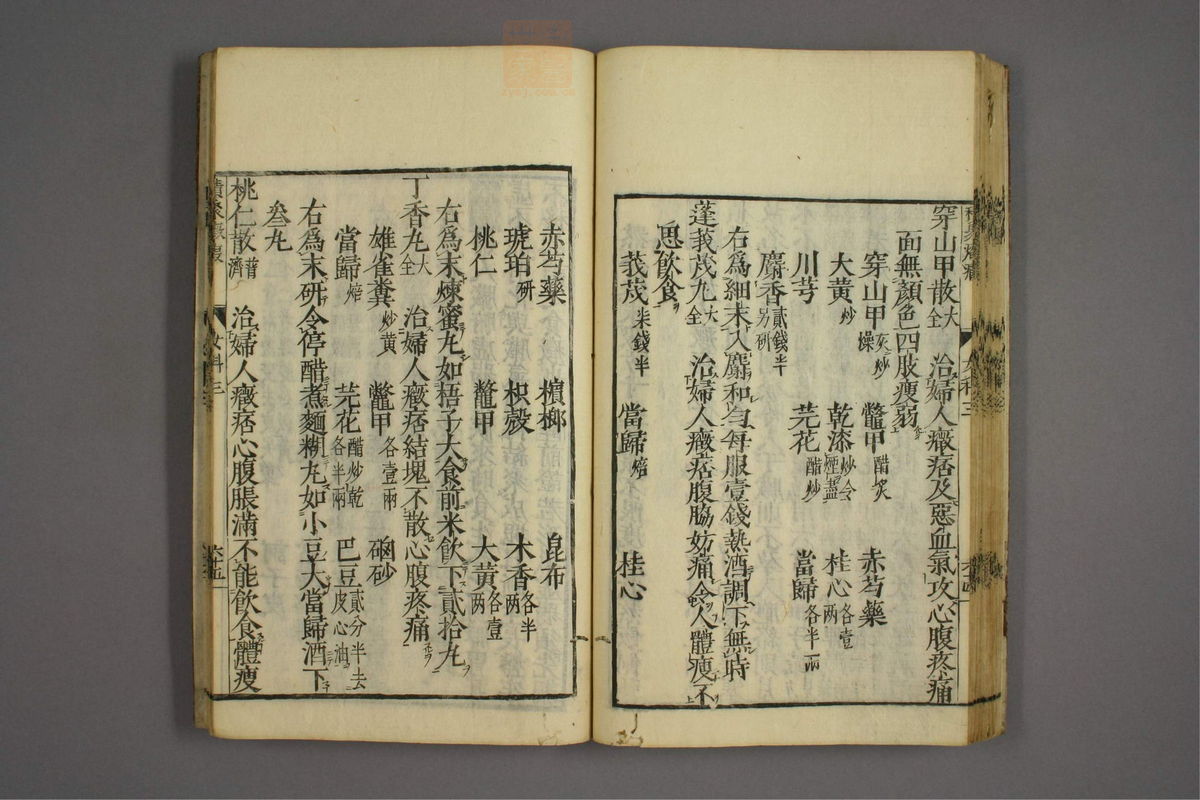 穿山甲散 大全 治婦人癥痞及惡血氣攻心腹疼痛
面無顏色四肢瘦弱
穿山甲 灰炒燥 鱉甲 醋炙 赤芍藥
大黃 炒 乾漆 炒令煙盡 桂心 各壹两
川芎 芫花 醋炒 當歸 各半兩
麝香 貳錢半另研
右為細末入麝和勻每服壹錢熱酒調下無時
蓬莪茂丸 大全 治婦人癥痞腹脇妨痛令人體瘦不
思飲食
莪茂 柒錢半 當歸 焙 桂心
赤芍藥 檳榔 昆布
琥珀 研 枳殼 木香 各半两
桃仁 鱉甲 大黃 各壹两
右爲末煉蜜丸如梧子大食前米飲下貳拾丸
丁香丸 大全 治婦人癥痞結塊不散心腹疼痛
雄雀糞 炒黃 鱉甲 各壹兩 硇砂
當歸 焙 芫花 醋炒乾各半兩 巴豆 貳分半去皮心油
右爲末研令停醋煮麵糊丸如小豆大當歸酒下
叁丸
桃仁散 普濟 治婦人癥痞心腹脹滿不能飲食體瘦
女科三
六十五